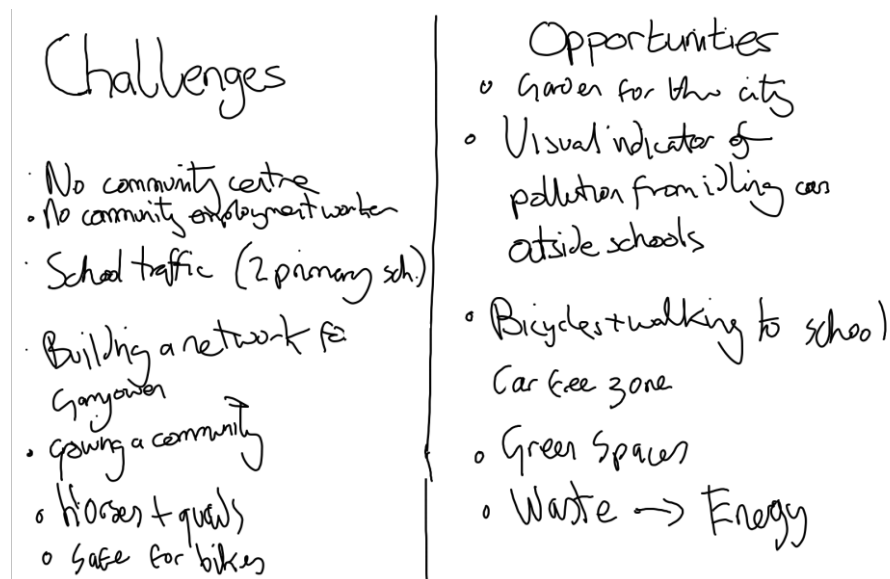 Challenges
· No community centre
• No community employment worker
· School traffic (2 primary sch.)
· Building a network for
Garryowen
• growing a community
• Horses + quads
• Safe for bikes
Opportunities
• Garden for the city
• Visual indicator of
pollution from idling cars
outside schools
• Bicycles + walking to school
Car free zone
• Green Spaces
• Waste → Energy